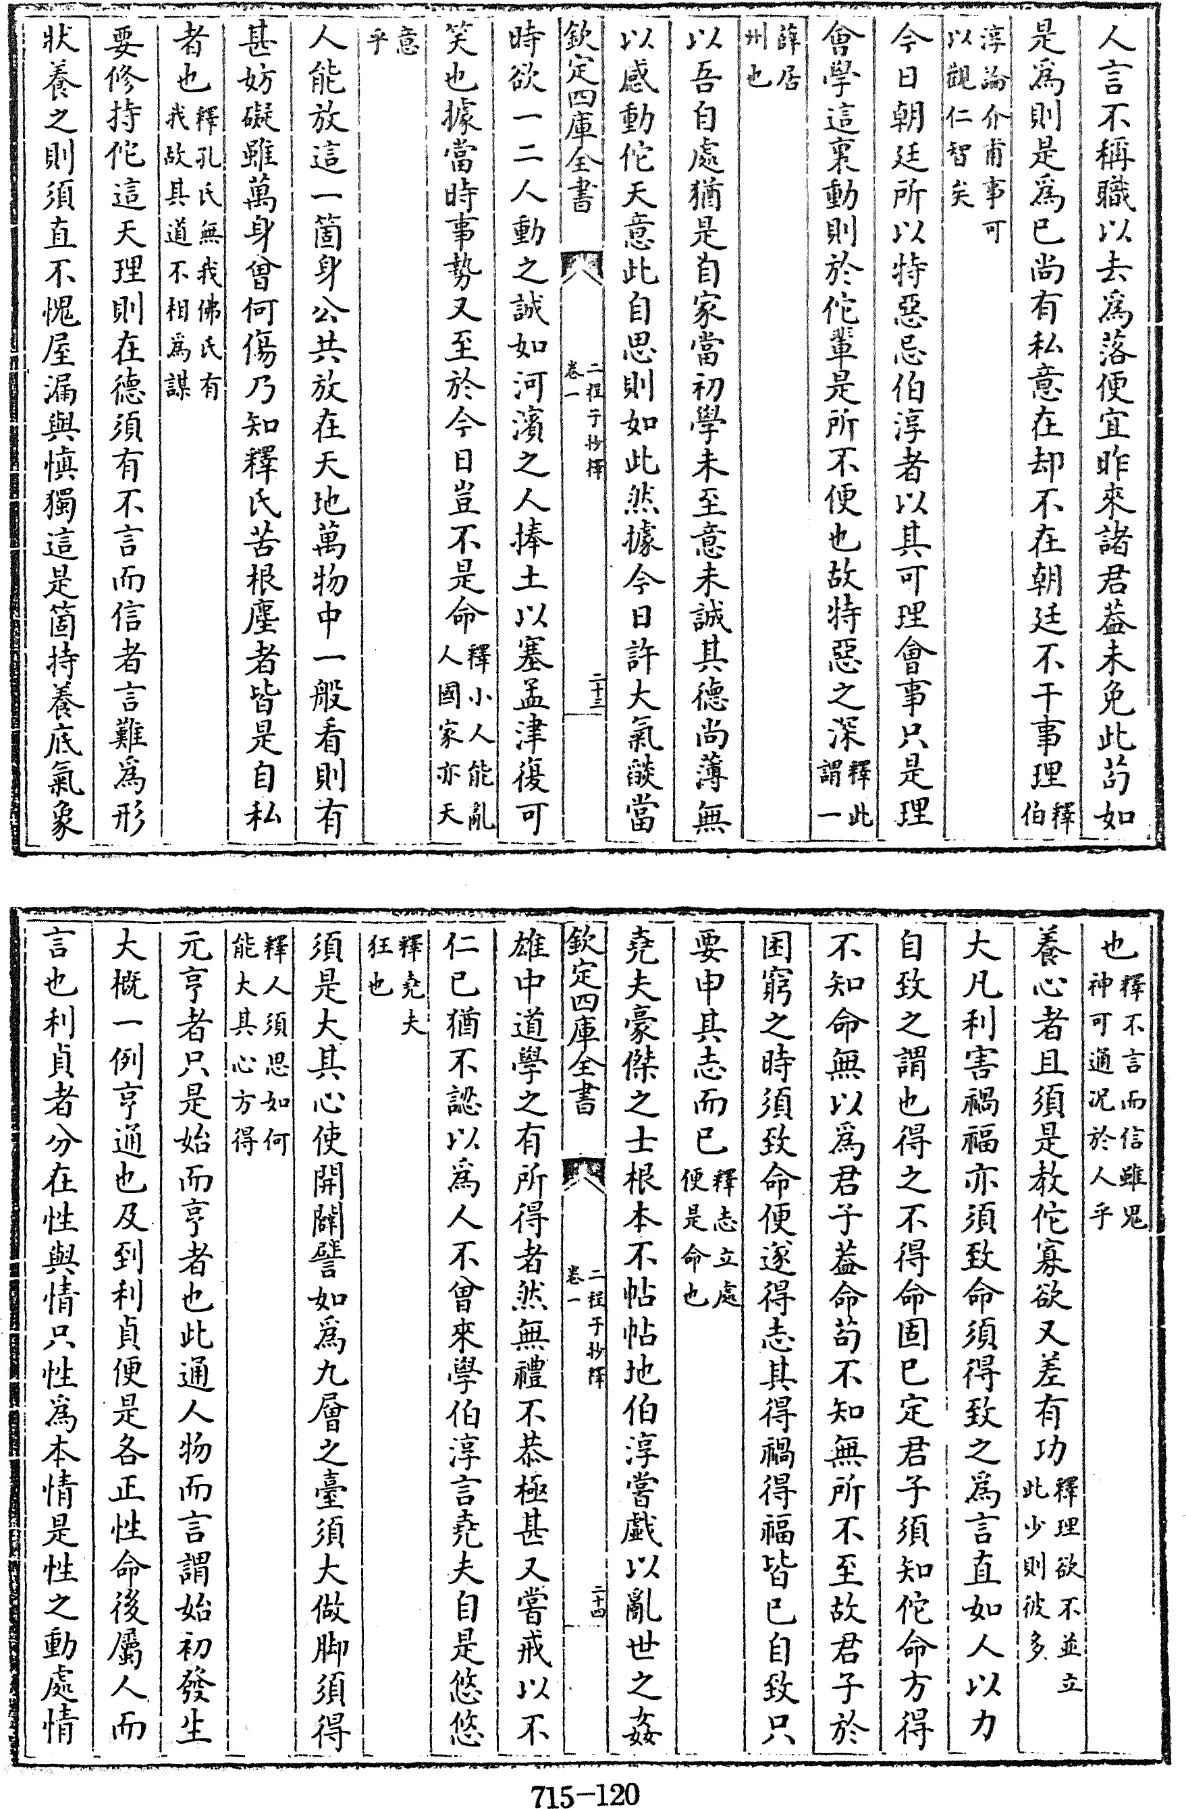 人言不稱職以去為落便宜昨來諸君葢未免此茍如
是為則是為已尚有私意在却不在朝廷不干事理釋伯
淳論介甫事可以觀仁智矣
今日朝廷所以特惡忌伯淳者以其可理會事只是理
會學這裏動則於佗輩是所不便也故特惡之深釋此謂一
薛居州也
以吾自處猶是自家當初學未至意未誠其德尚薄無
以感動佗天意此自思則如此然據今日許大氣燄當
欽定四庫全書
二程子抄釋
卷一
二十三
時欲一二人動之誠如河濱之人捧土以塞孟津復可
笑也據當時事勢又至於今日豈不是命釋小人能亂人國家亦天
意乎
人能放這一箇身公共放在天地萬物中一般看則有
甚妨礙雖萬身曾何傷乃知釋氏苦根塵者皆是自私
者也釋孔氏無我佛氏有我故其道不相為謀
要修持佗這天理則在德須有不言而信者言難為形
狀養之則須直不愧屋漏與慎獨這是箇持養底氣象
也釋不言而信雖鬼神可通况於人乎
養心者且須是教佗寡欲又差有功釋理欲不並立此少則彼多
大凡利害禍福亦須致命須得致之為言直如人以力
自致之謂也得之不得命固已定君子須知佗命方得
不知命無以為君子葢命茍不知無所不至故君子於
困窮之時須致命便遂得志其得禍得福皆已自致只
要申其志而已釋志立處便是命也
堯夫豪傑之士根本不帖帖地伯淳嘗戲以亂世之姦
欽定四庫全書
二程子抄釋
卷一
二十四
雄中道學之有所得者然無禮不恭極甚又嘗戒以不
仁已猶不認以為人不曾來學伯淳言堯夫自是悠悠
釋堯夫狂也
須是大其心使開闊譬如為九層之臺須大做脚須得
釋人須思如何能大其心方得
元亨者只是始而亨者也此通人物而言謂始初發生
大概一例亨通也及到利貞便是各正性命後屬人而
言也利貞者分在性與情只性為本情是性之動處情
715-120